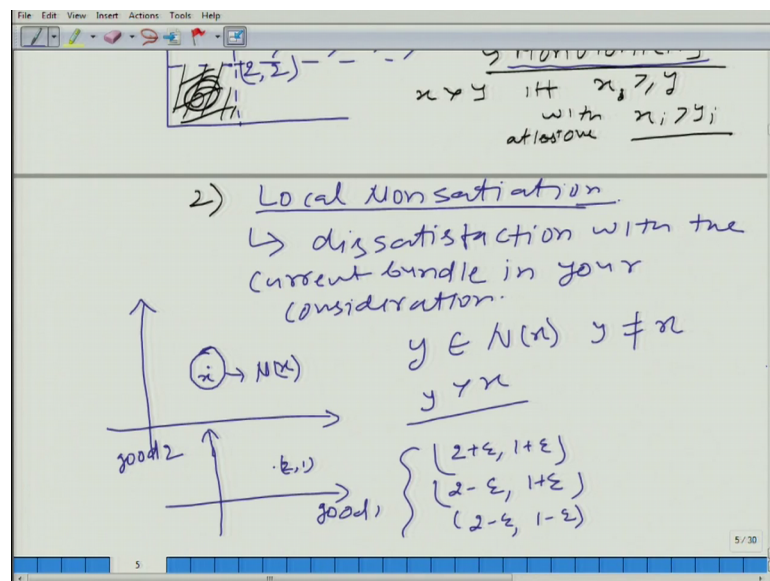 File Edit View Insert Actions Tools Help
(2,2)
Monotonicity
x > y iff x_i ≥ y
with x_i > y_i
atleast one
2) Local Nonsatiation.
↳ dissatisfaction with the
current bundle in your
consideration.
y ∈ N(x) y ≠ x
ẋ → N(x)
y > x
good 2
(2+ε, 1+ε)
.(2,1)
(2-ε, 1+ε)
good 1
(2-ε, 1-ε)
5/30
5